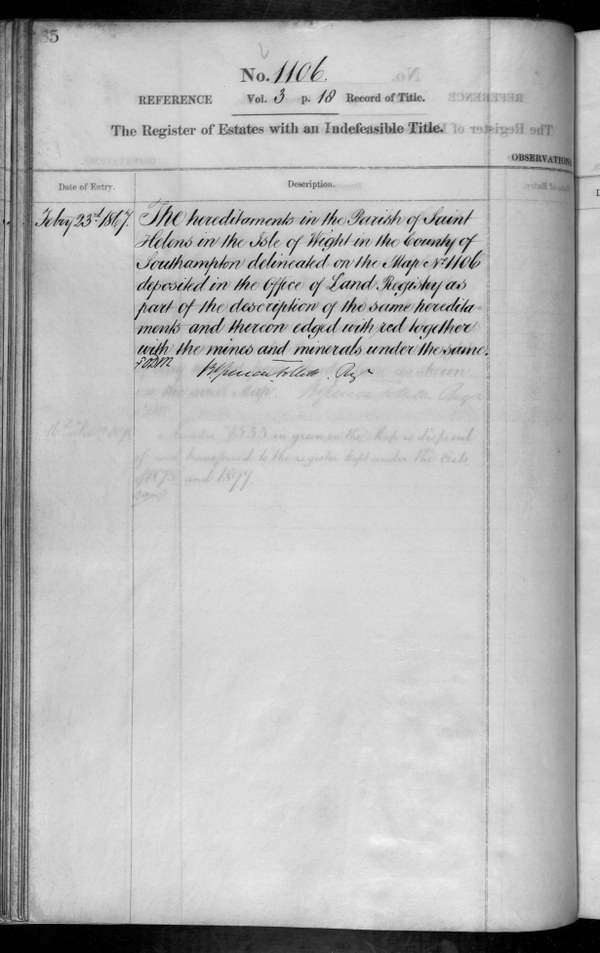 35
No. 1106.
REFERENCE Vol. 3 p. 18 Record of Title.
The Register of Estates with an Indefeasible Title.
OBSERVATIONS
Date of Entry. Description.
Febry 23rd 1867. The hereditaments in the Parish of Saint
Helens in the Isle of Wight in the County of
Southampton delineated on the Map No. 1106
deposited in the Office of Land Registry as
part of the description of the same heredita-
ments and thereon edged with red together
with the mines and minerals under the same.
in green on the Map is disposed
of and transferred to the register kept under the Acts
of 1875 and 1897.